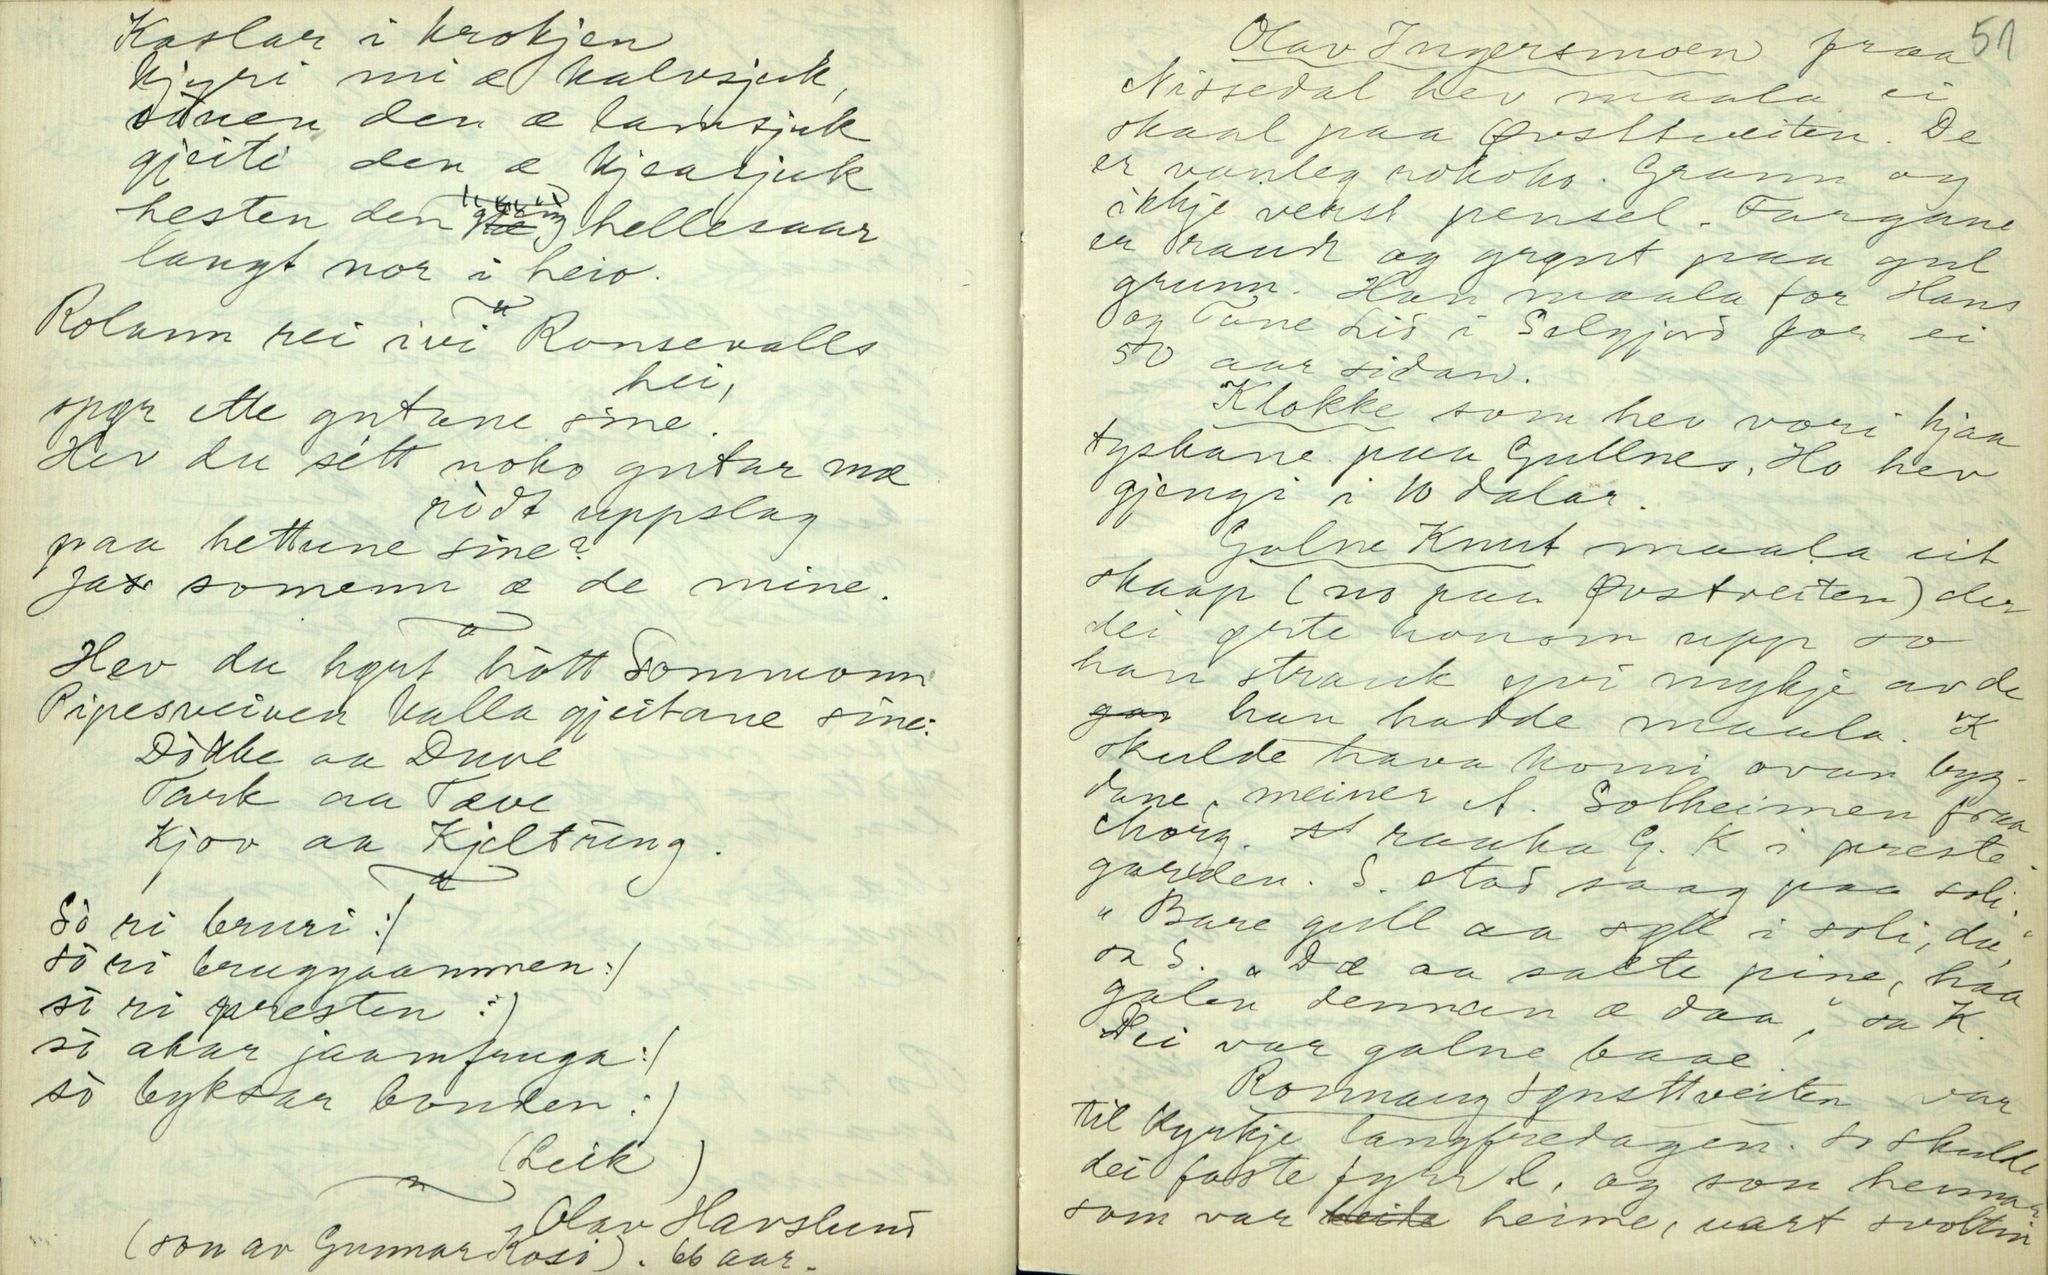 Kaslar i krokjen
kjyri mi æ kalvsjuk,
sauen den æ lamsjuk
gjeiti den æ kjeasjuk
hesten den hellesaar
langt nor i heio.
Rolann rei ivi Ronsevalls
hei,
spyr ette gutane sine.
Hev du sétt noko gutar mæ
ròdt uppslag
paa hettune sine?
Ja somenn æ de mine.
Hev du høyrt hòtt Sommonn
Pipesveiven kalla gjeitane sine:
Dòkke aa Duve
Tark aa Tæve
Kjov aa Kjeltring.
Sò ri bruri :/
sò ri brugyaammen :/
sò ri presten :/
sò akar jaamfruga :/
sò byksar bonden :/
(Leik)
Olav Havslund
(son av Gunnar Kosi). 66 aar.
51
Olav Ingersmoen fraa
Nissedal hev maala ei
skaal paa Øvsttveiten. De
er vanleg rokoko. Grann og
ikkje verst pensel. Fargane
er raudt og grønt paa gul
grunn. Han maala for Hans
og Tone Lid i Selgjord for ei
50 aar sidan.
Klokke som hev vori hjaa
tyskane paa Gullnes. Ho hev
gjengi i 10 dalar.
Galne Knut maala eit
skaap (no paa Øvstveiten) der
dei ørte honom upp so
han strauk yvi mykje av de
han hadde maala. K
skulde hava komi ovan byg-
dane, meiner A. Solheimen fraa
raaka G. K i preste-
garden. S. stod saag paa soli.
"Bare gull aa sylv i soli, du,"
sa S. "Dæ aa salte pine, haa
galen dennan æ daa," sa K.
Dei var galne baae.
Ronnaug Synsttveiten var
til kyrkje langfredagen. So skulde
dei faste fyrr l, og son hennar
som var heime, vart svolten